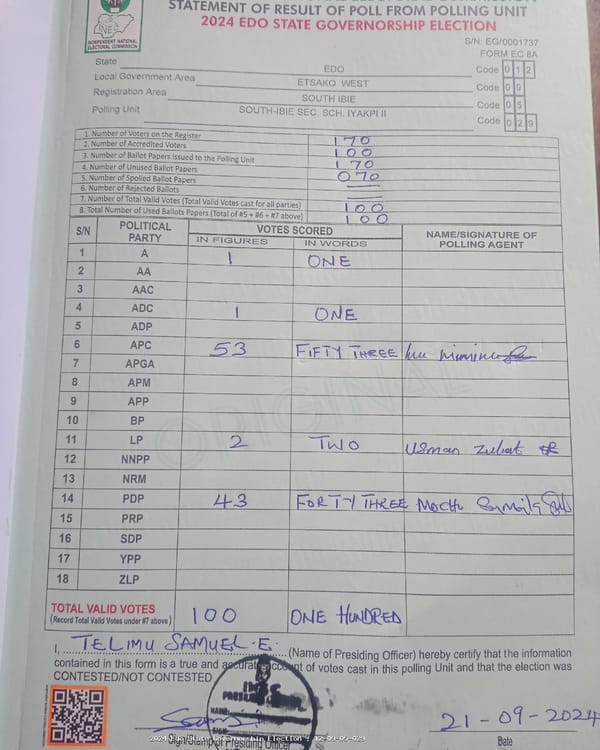 STATEMENT OF RESULT OF POLL FROM POLLING UNIT
2024 EDO STATE GOVERNORSHIP ELECTION
INEC
INDEPENDENT NATIONAL
ELECTORAL COMMISSION
S/N: EG/0001737
FORM EC 8A
State EDO Code 0 1 2
Local Government Area ETSAKO WEST Code
Registration Area SOUTH IBIE Code 0 5
Polling Unit SOUTH-IBIE SEC. SCH. IYAKPI II Code 0 2 9
1. Number of Voters on the Register 170
2. Number of Accredited Voters 100
3. Number of Ballot Papers Issued to the Polling Unit 170
4. Number of Unused Ballot Papers 070
5. Number of Spoiled Ballot Papers —
6. Number of Rejected Ballots —
7. Number of Total Valid Votes (Total Valid Votes cast for all parties) 100
8. Total Number of Used Ballots Papers (Total of #5 + #6 + #7 above) 100
S/N POLITICAL PARTY VOTES SCORED NAME/SIGNATURE OF POLLING AGENT
IN FIGURES IN WORDS
1 A 1 ONE
2 AA
3 AAC
4 ADC 1 ONE
5 ADP
6 APC 53 FIFTY THREE
7 APGA
8 APM
9 APP
10 BP
11 LP 2 TWO Usman
12 NNPP
13 NRM
14 PDP 43 FORTY THREE
15 PRP
16 SDP
17 YPP
18 ZLP
ORIGINAL
TOTAL VALID VOTES 100 ONE HUNDRED
(Record Total Valid Votes under #7 above)
I, TELIMU SAMUEL. E. (Name of Presiding Officer) hereby certify that the information
contained in this form is a true and accurate account of votes cast in this polling Unit and that the election was
CONTESTED/NOT CONTESTED
21-09-2024
Sign/Stamp of Presiding Officer Date
2024 Edo State Governorship Election